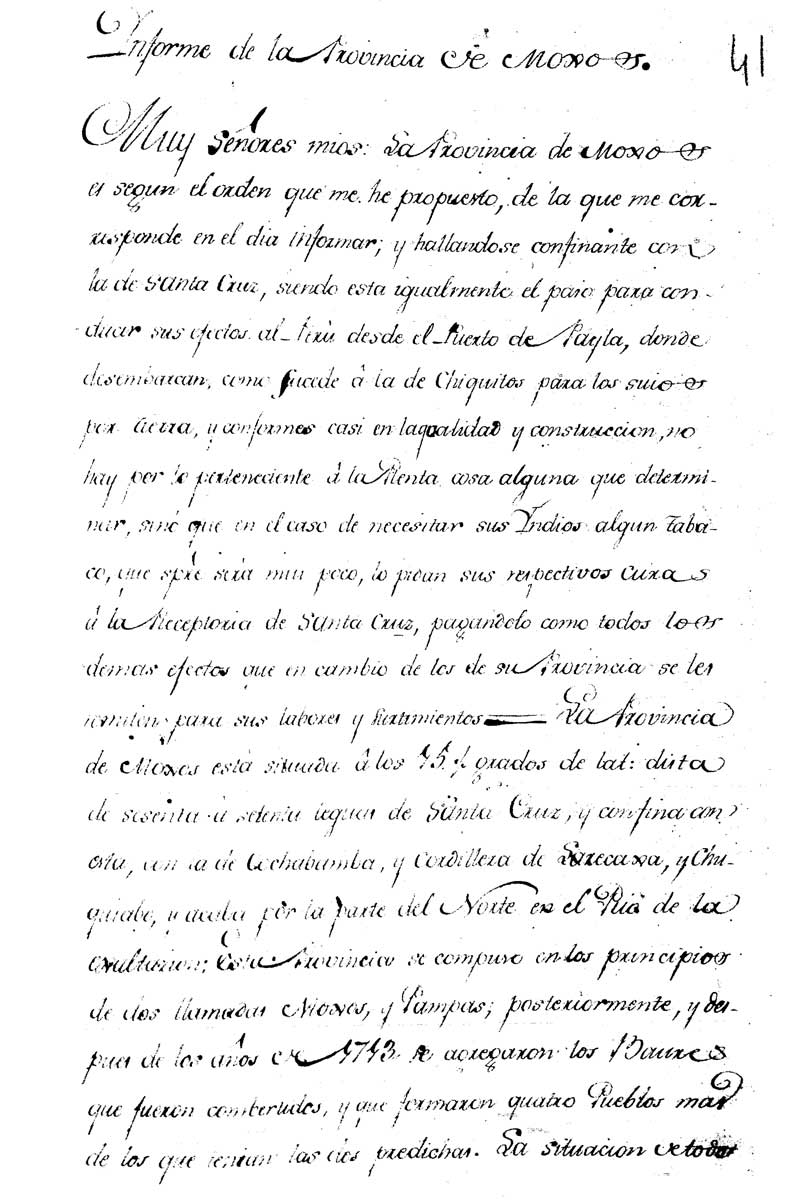 Informe de la Provincia de Moxos.
41
Muy Señores mios: La Provincia de Moxos
es segun el orden que me he propuesto, de la que me cor-
responde en el dia informar; y hallandose confinante con
la de Santa Cruz, siendo esta igualmente el paso para con-
ducir sus efectos al Perú desde el Puerto de Payla, donde
desembarcan, como sucede â la de Chiquitos para los suios
por tierra, y conformes casi en la qualidad y construccion, no
hay por lo perteneciente â la Renta cosa alguna que determi-
nar, sinó que en el caso de necesitar sus Yndios algun taba-
co, que spre será mui poco, lo pidan sus respectivos Curas
â la Receptoria de Santa Cruz, pagandolo como todos los
demas efectos que en cambio de los de su Provincia se les
remiten para sus labores y Surtimientos La Provincia
de Moxos está situada â los 15 grados de lat: dista
de sesenta â setenta leguas de Santa Cruz, y confina con
esta, con la de Cochabamba, y Cordillera de Larecaxa, y Chu-
y acaba pòr la parte del Norte en el Rio de la
Esta Provincia se compuso en los principios
de dos llamadas Moxos, y Pampas; posteriormente, y des-
pues de los años de 1713 se agregaron los Baures
que fueron combertidos, y que formaron quatro Pueblos mas
de los que tenian las dos predichas. La situacion de todos